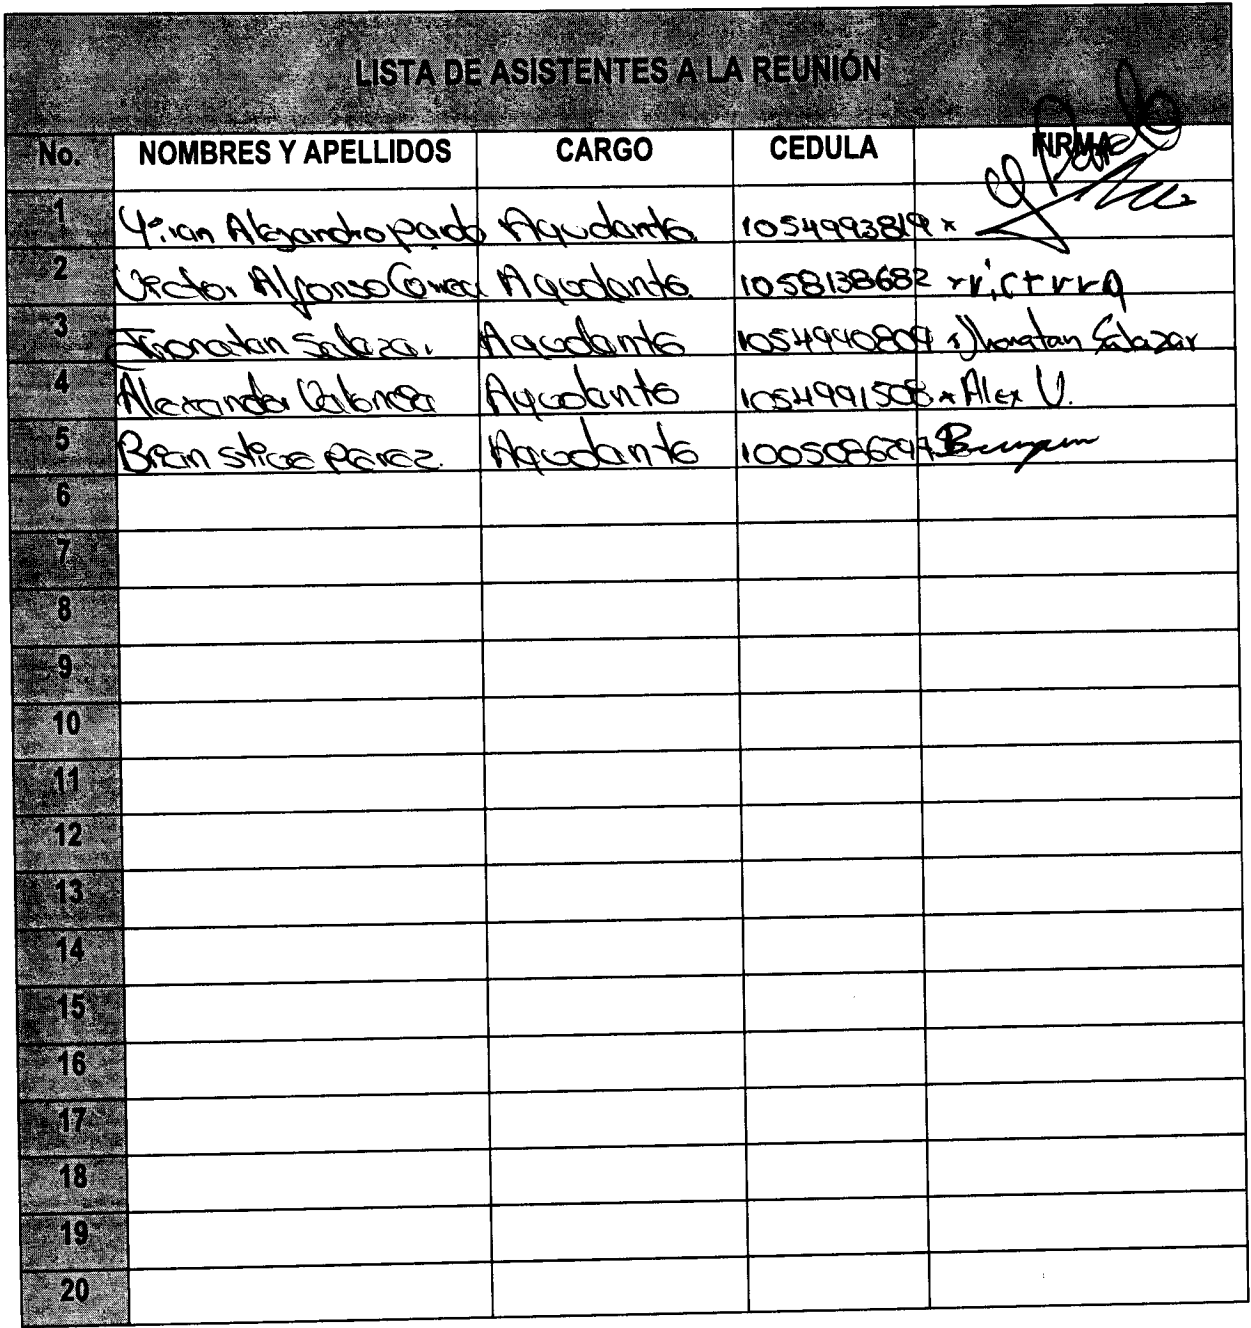 LISTA DE ASISTENTES A LA REUNIÓN
No. NOMBRES Y APELLIDOS CARGO CEDULA FIRMA
1 Alejandro pardo Ayudante 1054993819 x
2 Victor Alfonso Correa Ayudante 1058138682
3 Jhonatan Salazar Ayudante 1054940809 x Jhonatan Salazar
4 Alexander Valencia Ayudante 1054991508 x Alex V.
5 Brian stive perez Ayudante
6
7
8
9
10
11
12
13
14
15
16
17
18
19
20